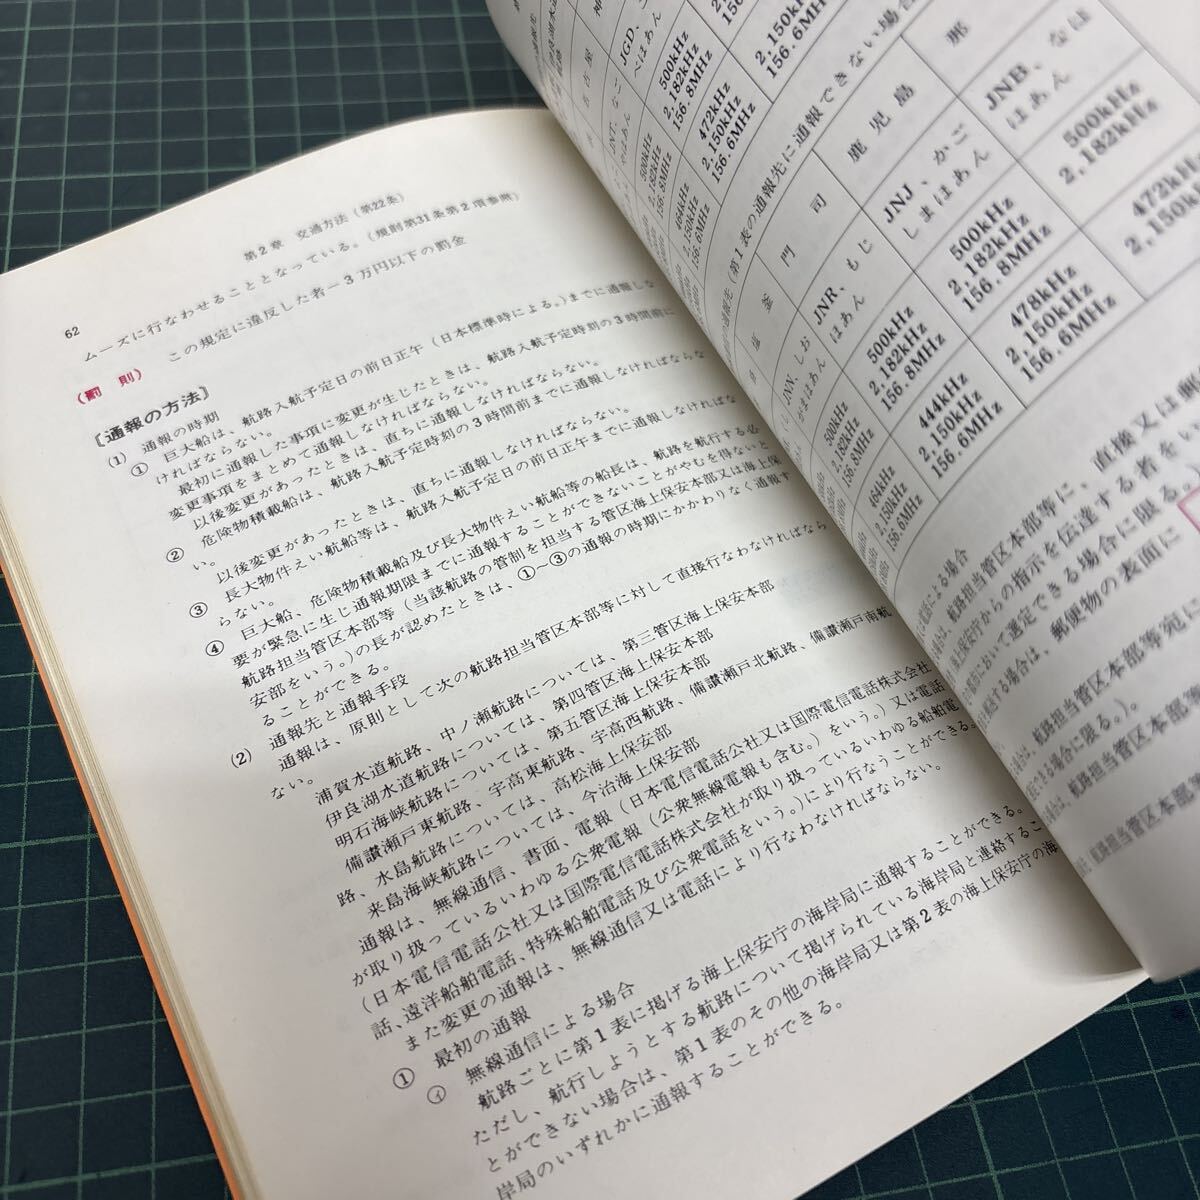 62
第2章 交通方法（第22条）
ムーズに行なわせることとなっている。（規則第31条第2項参照）
（罰 則） この規定に違反した者－3万円以下の罰金
〔通報の方法〕
(1) 通報の時期
① 巨大船は、航路入航予定日の前日正午（日本標準時による。）までに通報しな
ければならない。
最初に通報した事項に変更が生じたときは、航路入航予定時刻の3時間前に
変更事項をまとめて通報しなければならない。
以後変更があったときは、直ちに通報しなければならない。
② 危険物積載船は、航路入航予定時刻の3時間前までに通報しなければならな
い。
以後変更があったときは、直ちに通報しなければならない。
③ 長大物件えい航船等は、航路入航予定日の前日正午までに通報しなければな
らない。
④ 巨大船、危険物積載船及び長大物件えい航船等の船長は、航路を航行する必
要が緊急に生じ通報期限までに通報することができないことがやむを得ないと
航路担当管区本部等（当該航路の管制を担当する管区海上保安本部又は海上保
安部をいう。）の長が認めたときは、①～③の通報の時期にかかわりなく通報す
ることができる。
(2) 通報先と通報手段
通報は、原則として次の航路担当管区本部等に対して直接行なわなければなら
ない。
浦賀水道航路、中ノ瀬航路については、第三管区海上保安本部
伊良湖水道航路については、第四管区海上保安本部
明石海峡航路については、第五管区海上保安本部
備讃瀬戸東航路、宇高東航路、宇高西航路、備讃瀬戸北航路、備讃瀬戸南航
路、水島航路については、高松海上保安部
来島海峡航路については、今治海上保安部
通報は、無線通信、書面、電報（日本電信電話公社又は国際電信電話株式会社
が取り扱っているいわゆる公衆電報（公衆無線電報も含む。）をいう。）又は電話
（日本電信電話公社又は国際電信電話株式会社が取り扱っているいわゆる船舶電
話、遠洋船舶電話、特殊船舶電話及び公衆電話をいう。）により行なうことができる。
また変更の通報は、無線通信又は電話により行なわなければならない。
① 最初の通報
㋑ 無線通信による場合
航路ごとに第1表に掲げる海上保安庁の海岸局に通報することができる。
ただし、航行しようとする航路について掲げられている海岸局と連絡するこ
とができない場合は、第1表のその他の海岸局又は第2表の海上保安庁の海
岸局のいずれかに通報することができる。
名 古 屋
JNT、なご
やほあん
500kHz
2,182kHz
156.8MHz
472kHz
2,150kHz
156.6MHz
の通報先（第1表の通報先に通報できない場合
塩 釜
JNN、しお
がまほあん
500kHz
2,182kHz
156.8MHz
464kHz
2,150kHz
156.6MHz
門 司
JNR、もじ
ほあん
500kHz
2,182kHz
156.8MHz
444kHz
2,150kHz
156.6MHz
鹿 児 島
JNJ、かご
しまほあん
500kHz
2,182kHz
156.8MHz
478kHz
2,150kHz
156.6MHz
那
JNB、なは
ほあん
500kHz
2,182kHz
472kHz
2,150kHz
による場合
航路担当管区本部等に、直接又は郵
海上保安庁からの指示を伝達する者をい
において選定できる場合に限る。）
場合は、郵便物の表面に
航路担当管区本部等宛に
できる場合に限る。）。
場合は、航路担当管区本部等
航路担当管区本部